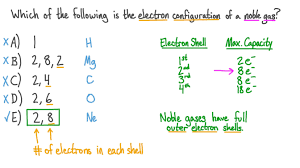 Which of the following is the electron configuration of a noble gas?
x A) 1 H
x B) 2, 8, 2 Mg
x C) 2, 4 C
x D) 2, 6 O
✓ E) 2, 8 Ne
# of electrons in each shell
Electron Shell Max. Capacity
1st 2 e⁻
2nd → 8 e⁻
3rd 8 e⁻
4th 18 e⁻
Noble gases have full
outer electron shells.